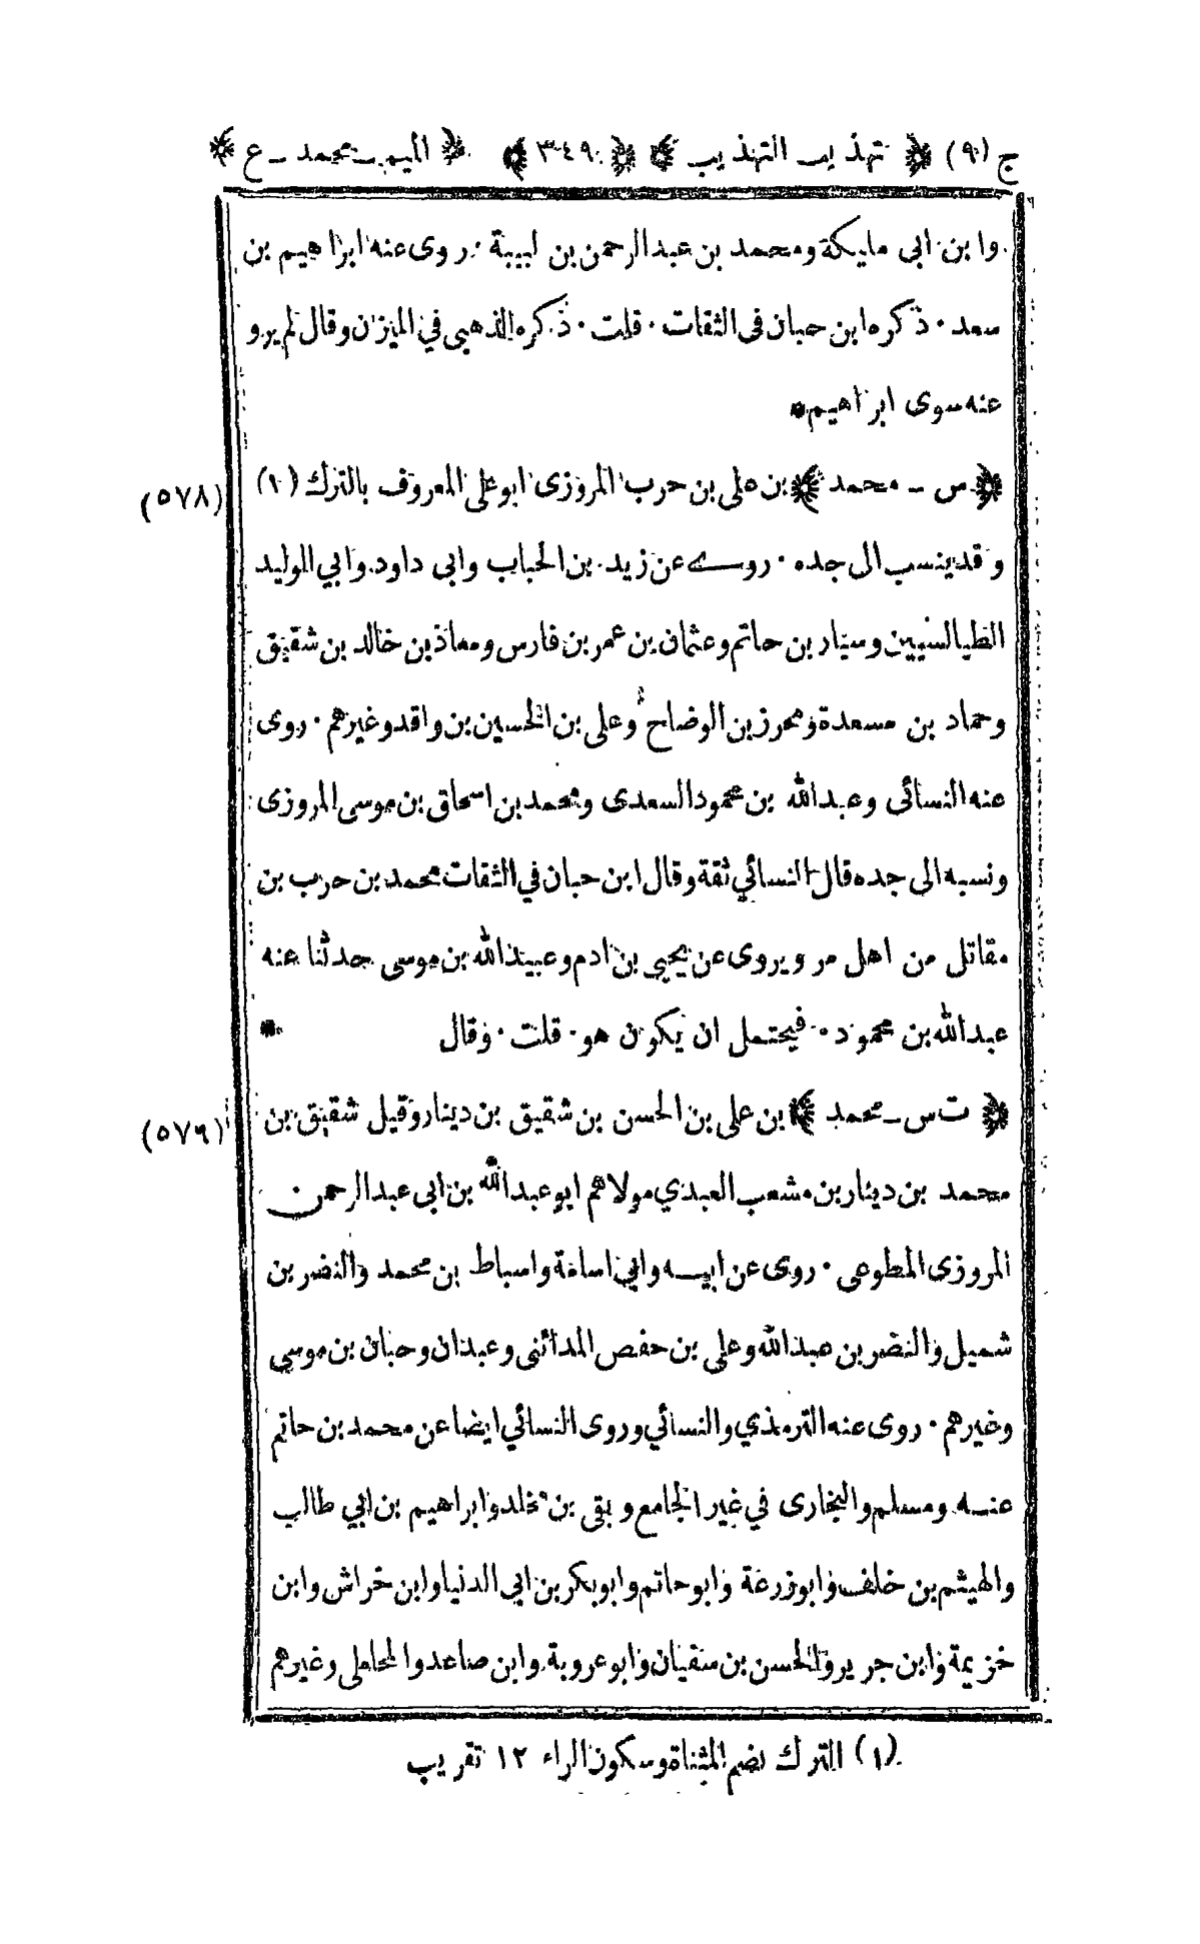 ج (٩) ﴿ تهذيب التهذيب ﴾ ﴿ ٣٤٩ ﴾ ﴿ الميم ـ محمد ـ ع ﴾
وابن ابى مليكة ومحمد بن عبدالرحمن بن لبيبة . روى عنه ابراهيم بن
سعد . ذكره ابن حبان فى الثقات . قلت . ذكره الذهبى في الميزان وقال لم يرو
عنه سوى ابراهيم *
﴿ س ـ محمد ﴾ بن على بن حرب المروزى ابو على المعروف بالترك (١)
(٥٧٨)
وقد ينسب الى جده . روے عن زيد بن الحباب وابى داود وابي الوليد
الطيالسيين وسيار بن حاتم وعثمان بن عمر بن فارس ومعاذ بن خالد بن شقيق
وحماد بن مسعدة ومحرز بن الوضاح وعلى بن الحسين بن واقد وغيرهم . روى
عنه النسائى وعبدالله بن محمود السعدى ومحمد بن اسحاق بن موسى المروزى
ونسبه الى جده قال النسائي ثقة وقال ابن حبان في الثقات محمد بن حرب بن
مقاتل من اهل مرو يروى عن يحيى بن ادم وعبيدالله بن موسى حدثنا عنه
عبدالله بن محمود . فيحتمل ان يكون هو . قلت . وقال *
﴿ ت س ـ محمد ﴾ بن على بن الحسن بن شقيق بن دينار وقيل شقيق بن
(٥٧٩)
محمد بن دينار بن مشعب العبدي مولاهم ابو عبدالله بن ابى عبدالرحمن
المروزى المطوعى . روى عن ابيه وابي اسامة واسباط بن محمد والنضر بن
شميل والنضر بن عبدالله وعلى بن حفص المدائنى وعبدان وحبان بن موسى
وغيرهم . روى عنه الترمذي والنسائي وروى النسائي ايضا عن محمد بن حاتم
عنه ومسلم والبخارى في غير الجامع وبقى بن مخلد وابراهيم بن ابي طالب
والهيثم بن خلف وابوزرعة وابوحاتم وابوبكر بن ابي الدنيا وابن خراش وابن
خزيمة وابن جرير والحسن بن سفيان وابوعروبة وابن صاعد والمحاملى وغيرهم
(١) الترك بضم المثناة وسكون الراء ١٢ تقريب